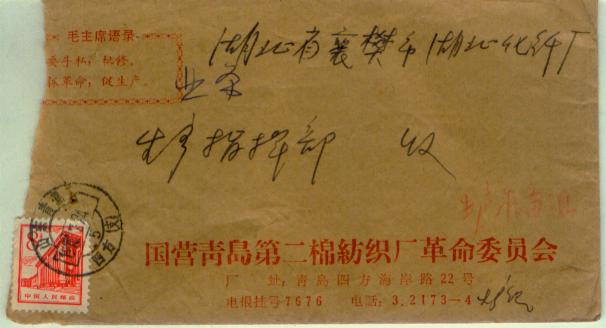 毛主席语录
要斗私，批修。
抓革命，促生产。
湖北省襄樊市湖北化纤厂
指挥部 收
国营青島第二棉紡织厂革命委员会
厂 址：青島四方海岸路22号
电报挂号7676 电話：3.2173—4
8
中国人民邮政
山东青島